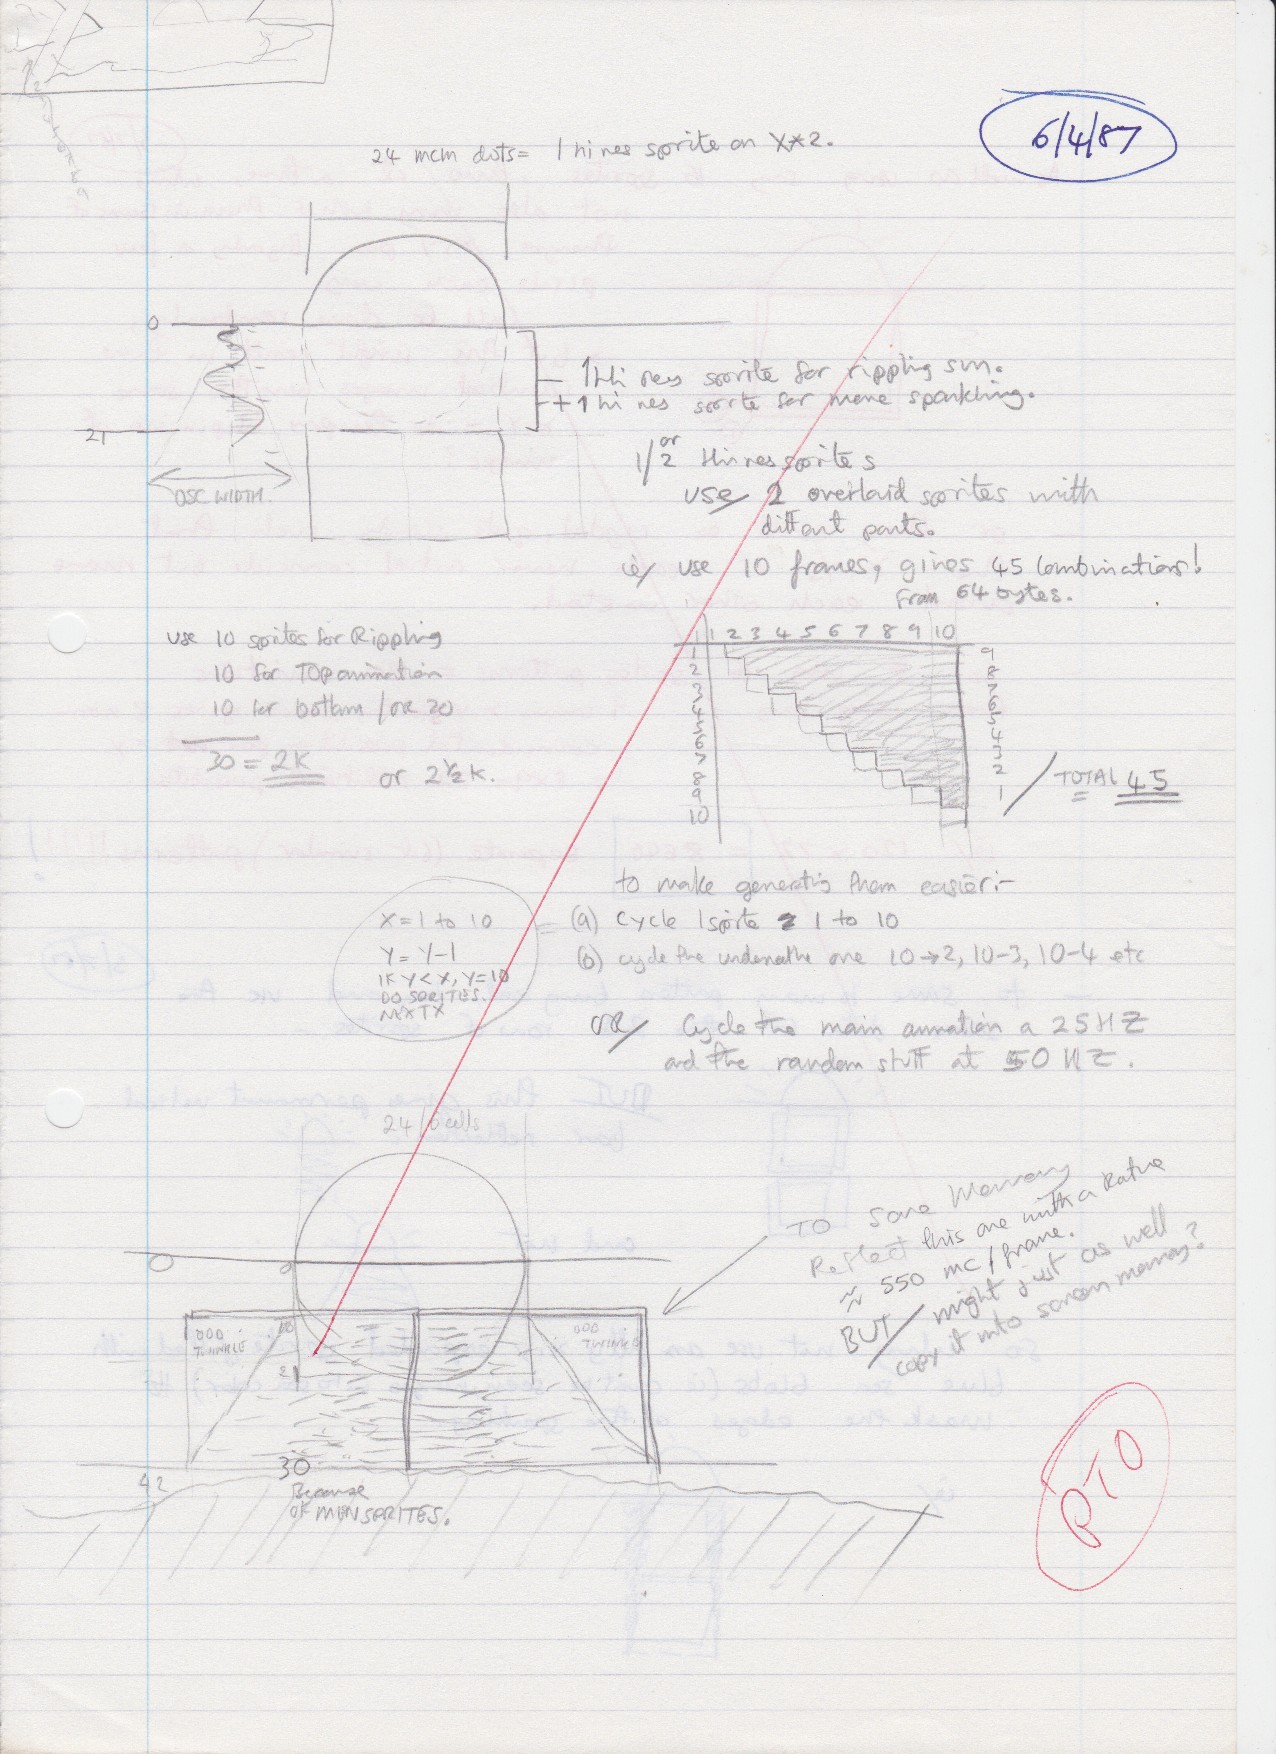 6/4/87
24 mcm dots= 1 hi res sprite on X*2.
0
1 Hi res sprite for rippling sun.
+ 1 hi res sprite for more sparkling.
21
OSC WIDTH.
1/or 2 Hi res sprites
use/ 2 overlaid sprites with
diffant parts.
ie/ use 10 frames, gives 45 combinations!
From 64 bytes.
use 10 sprites for Rippling
10 for TOP animation
10 for bottom / OR 20
30 = 2K or 2½K.
1 1 2 3 4 5 6 7 8 9 10
1 9
2 8
3 7
4 6
5 5
6 4
7 3
8 2
9 1
10
TOTAL 45
to make generating them easier:-
(a) cycle 1 sprite 1 to 10
(b) cycle the undernathe one 10→2, 10-3, 10-4 etc
OR/ Cycle the main anmation a 25HZ
and the random stuff at 50HZ.
X=1 to 10
Y= Y-1
IF Y<X, Y=10
DO SPRITES.
NEXT X
24/6 cells
TO Save Memory
Reflect this one with a Rotine
≈ 550 mc/frame.
BUT/ might just as well
copy it into screen memory?
0
ODD
TWINKLE
ODD
TWINKLE
21
42
30
Because
OF MEN SPRITES.
PTO